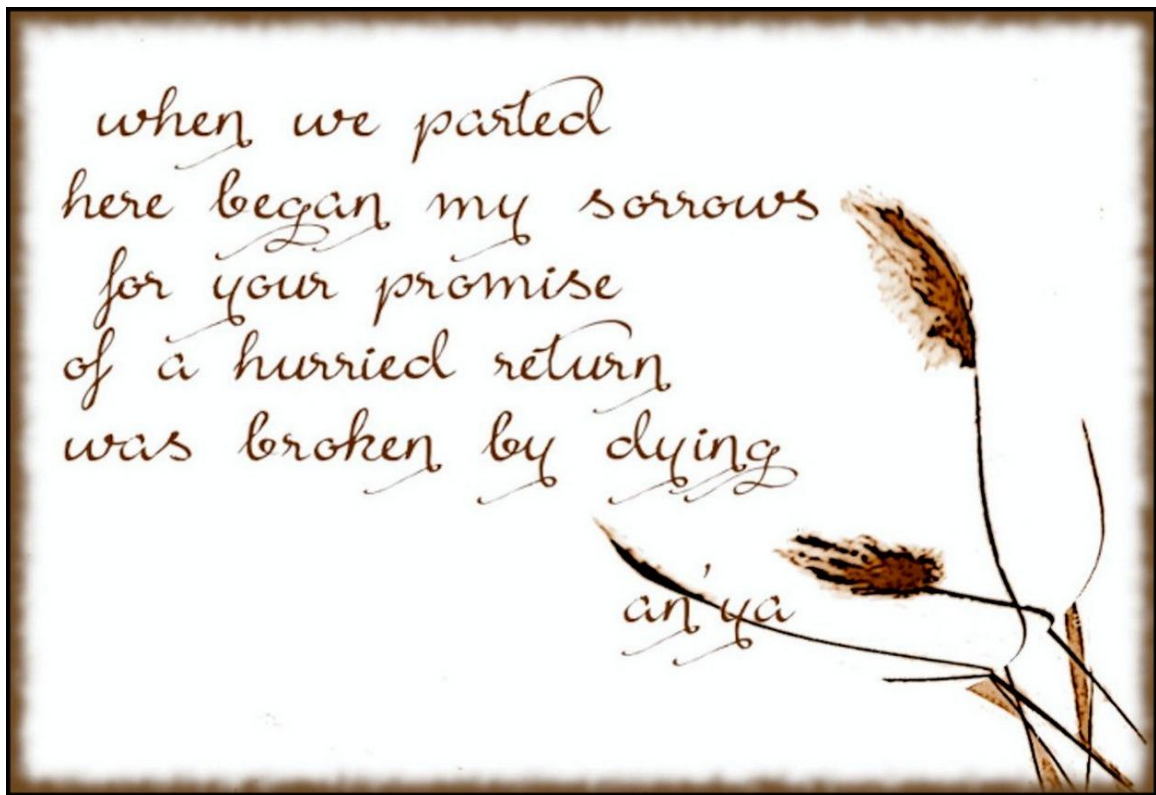 when we parted
here began my sorrows
for your promise
of a hurried return
was broken by dying
an'ya